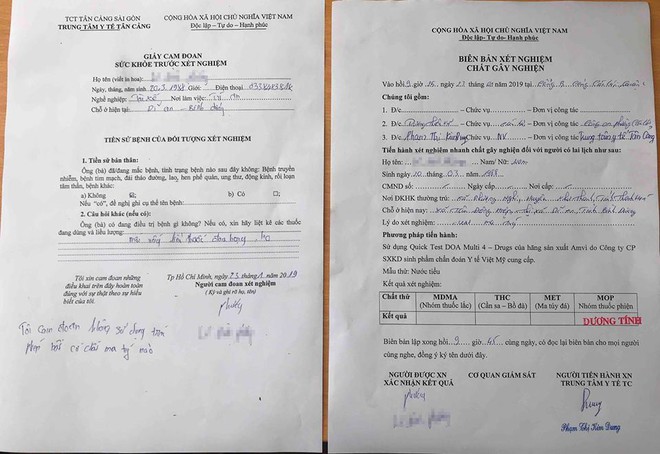 TCT TÂN CẢNG SÀI GÒN
TRUNG TÂM Y TẾ TÂN CẢNG
CỘNG HÒA XÃ HỘI CHỦ NGHĨA VIỆT NAM
Độc lập – Tự do – Hạnh phúc
GIẤY CAM ĐOAN
SỨC KHỎE TRƯỚC XÉT NGHIỆM
Họ tên (viết in hoa):
Ngày, tháng, năm sinh 20.3.1988 Giới Điện thoại
Nghề nghiệp: Tài xế Nơi làm việc:
Chỗ ở hiện tại: Dĩ an - Bình dương
TIỀN SỬ BỆNH CỦA ĐỐI TƯỢNG XÉT NGHIỆM
1. Tiền sử bản thân:
Ông (bà) đã/đang mắc bệnh, tình trạng bệnh nào sau đây không: Bệnh truyền
nhiễm, bệnh tim mạch, đái tháo đường, lao, hen phế quản, ung thư, động kinh, rối loạn
tâm thần, bệnh khác:
a) Không b) Có
Nếu "có", đề nghị ghi cụ thể tên bệnh:
2. Câu hỏi khác (nếu có):
Ông (bà) có đang điều trị bệnh gì không? Nếu có, xin hãy liệt kê các thuốc
đang dùng và liều lượng:
thuốc đau họng, ho
Tôi xin cam đoan những
điều khai trên đây hoàn toàn
đúng với sự thật theo sự hiểu
biết của tôi.
Tp Hồ Chí Minh, ngày 23 tháng 1 năm 2019
Người cam đoan xét nghiệm
(Ký và ghi rõ họ, tên)
Tôi cam đoan không sử dụng
phép bất cứ chất ma túy nào
CỘNG HÒA XÃ HỘI CHỦ NGHĨA VIỆT NAM
Độc lập- Tự do- Hạnh phúc
BIÊN BẢN XÉT NGHIỆM
CHẤT GÂY NGHIỆN
Vào hồi 9 giờ 26 ngày 23 tháng 01 năm 2019 tại
Chúng tôi gồm:
1. Đ/c Chức vụ Đơn vị công tác
2. Đ/c Chức vụ Đơn vị công tác
3. Đ/c Phạm Thị Kim Dung Chức vụ NV Đơn vị công tác Trung tâm y tế Tân Cảng
Tiến hành xét nghiệm nhanh chất gây nghiện đối với người có lai lịch như sau:
Họ tên: Nam/ Nữ: Nam
Sinh ngày 20 tháng 03 năm 1988
CMND số Ngày cấp Nơi cấp
Nơi ĐKHK thường trú:
Chỗ ở hiện nay:
Lý do xét nghiệm:
Phương pháp tiến hành:
Sử dụng Quick Test DOA Multi 4 – Drugs của hãng sản xuất Amvi do Công ty CP
SXKD sinh phẩm chẩn đoán Y tế Việt Mỹ cung cấp.
Mẫu thử: Nước tiểu
Kết quả xét nghiệm:
Chất thử MDMA THC MET MOP
(Nhóm thuốc lắc) (Cần sa – Bồ đà) (Ma túy đá) (Nhóm thuốc phiện)
Kết quả DƯƠNG TÍNH
Biên bản lập xong hồi 9 giờ 45 cùng ngày, có đọc lại biên bản cho mọi người
cùng nghe, đồng ý ký tên dưới đây.
NGƯỜI ĐƯỢC XN
XÁC NHẬN KẾT QUẢ
CƠ QUAN GIÁM SÁT
NGƯỜI TIẾN HÀNH XN
TRUNG TÂM Y TẾ TC
Phạm Thị Kim Dung